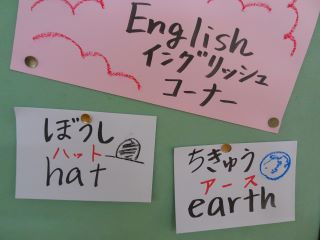 English
イングリッシュ
コーナー
ぼうし
ハット
hat
ちきゅう
アース
earth